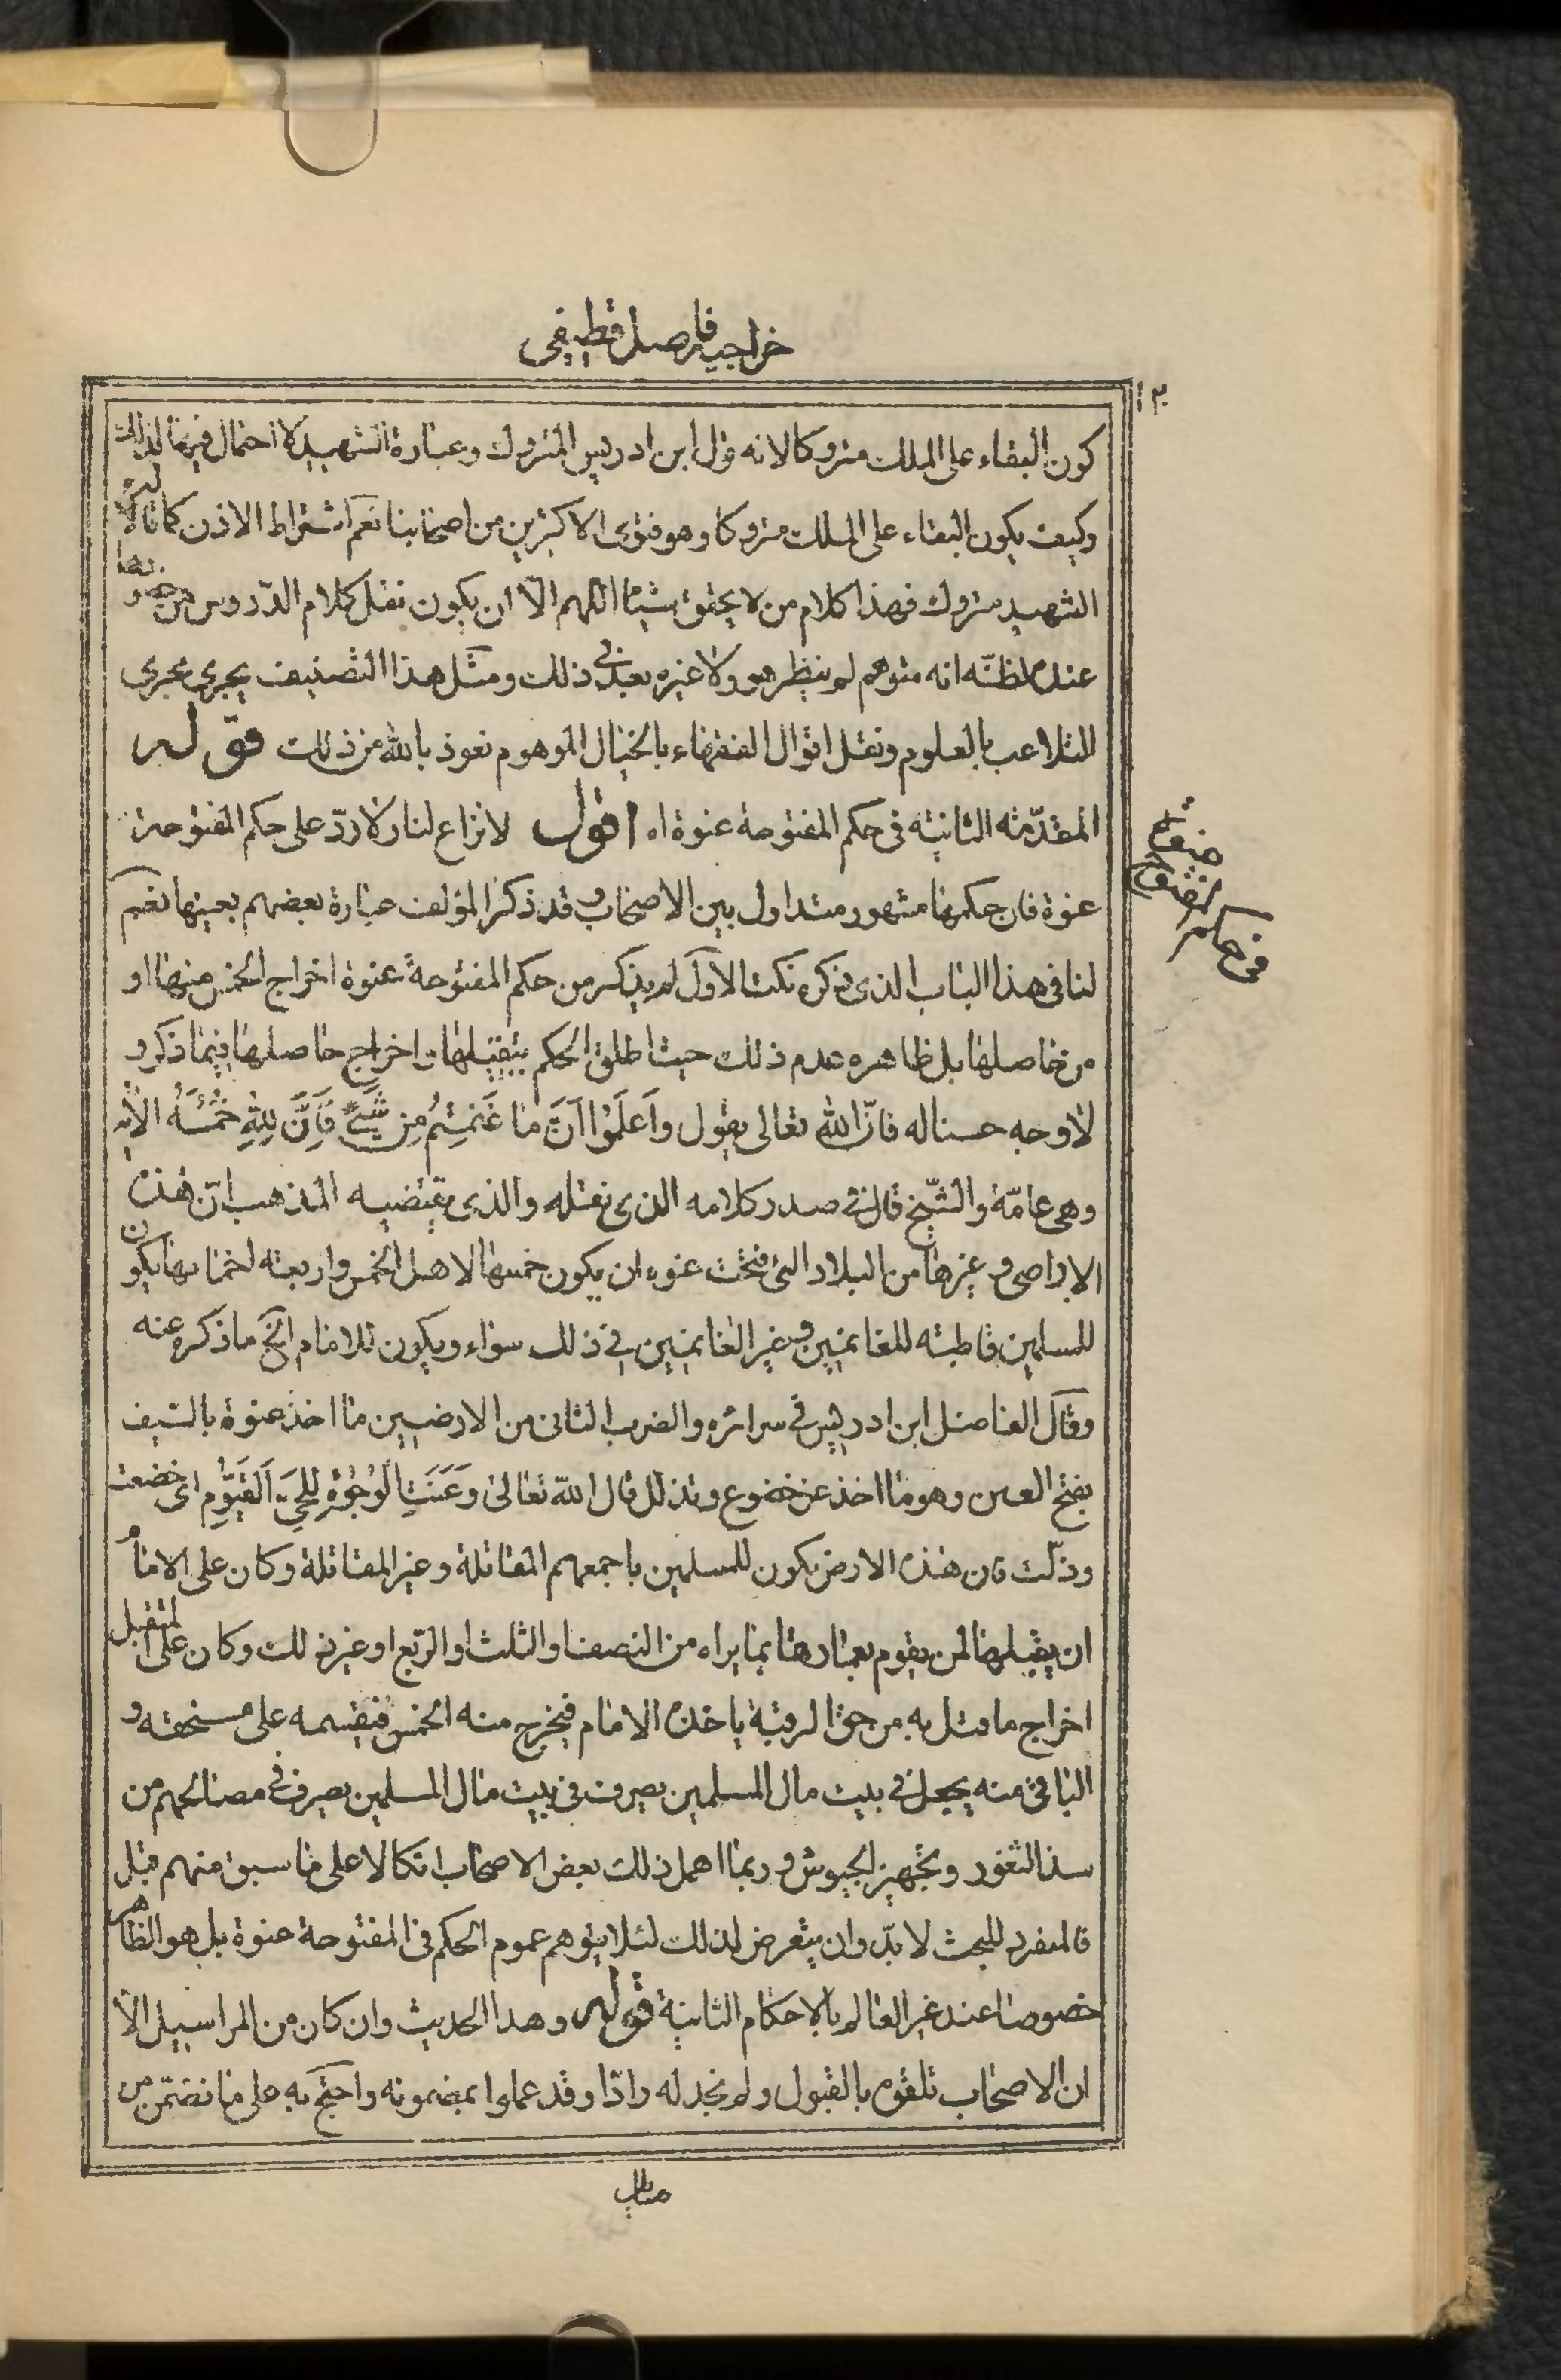 خراجيه فاضل قطيفى
كون البقاء على الملك متروكا لانه قول ابن ادريس المتروك وعبارة الشهيد لا احتمال فيها لذلك
وكيف يكون البقاء على الملك متروكا وهو فتوى الاكثرين من اصحابنا نعم اشتراط الاذن كما قاله
الشهيد متروك فهذا كلام من لا يحقق شيئا اللهم الّا ان يكون نقل كلام الدّروس من
عنده لظنّه انه متوهم لم ينظر هو ولا غيره بعد فى ذلك ومثل هذا التصنيف يجرى مجرى
التلاعب بالعلوم ونقل اقوال الفقهاء بالخيال الموهوم نعوذ بالله من ذلك قوله
المقدّمة الثانية فى حكم المفتوحة عنوة اه اقول لا نزاع لنا ولا ردّ على حكم المفتوحة
عنوة فان حكمها مشهور متداول بين الاصحاب وقد ذكر المؤلف عبارة بعضهم بعينها نعم
لنا فى هذا الباب الذى ذكره نكت الاول لم يذكر من حكم المفتوحة عنوة اخراج الخمس منها او
من حاصلها بل ظاهره عدم ذلك حيث اطلق الحكم بتقبيلها واخراج حاصلها فيما ذكر و
لا وجه حسنا له فانّ الله تعالى يقول وَاعلَمُوا اَنَّ ما غَنِمتُم مِن شَيءٍ فَاِنَّ لِلّهِ خُمُسَهُ الآية
وهى عامّة والشّيخ قال فى صدر كلامه الذى نقله والذى يقتضيه المذهب انّ هذه
الاراضى وغيرها من البلاد التى فتحت عنوه ان يكون خمسها لاهل الخمس واربعة اخماسها يكون
للمسلمين قاطبة للغانمين وغير الغانمين فى ذلك سواء ويكون للامام الخ ما ذكره عنه
وقال الفاضل ابن ادريس فى سرائره والضرب الثانى من الارضين ما اخذ عنوة بالسّيف
بفتح العين وهو ما اخذ عن خضوع وتذلل قال الله تعالى وَعَنَتِ الوُجُوهُ لِلحَيِّ القَيُّومِ اى خضعت
وذلّت فان هذه الارض يكون للمسلمين باجمعهم المقاتلة وغير المقاتلة وكان على الامام
ان يقبلها لمن يقوم بعمارتها بما يراه من النصف او الثلث او الرّبع او غير ذلك وكان على المتقبل
اخراج ما قبل به من حق الرقبة ياخذه الامام فيخرج منه الخمس فيقسمه على مستحقه و
الباقى منه يجعل فى بيت مال المسلمين يصرف فى بيت مال المسلمين يصرف فى مصالحهم من
سد الثغور وتجهيز الجيوش وربما اهمل ذلك بعض الاصحاب اتكالا على ما سبق منهم قبل
فالمنفرد للبحث لا بدّ وان يتعرض لذلك لئلا يتوهم عموم الحكم فى المفتوحة عنوة بل هو الظاهر
خصوصا عند غير العالم بالاحكام الثانية قوله وهذا الحديث وان كان من المراسيل الّا
ان الاصحاب تلقوه بالقبول ولم نجد له رادّا وقد عملوا بمضمونه واحتج به على ما تضمّن من
فى حكم
المفتوحة
عنوة